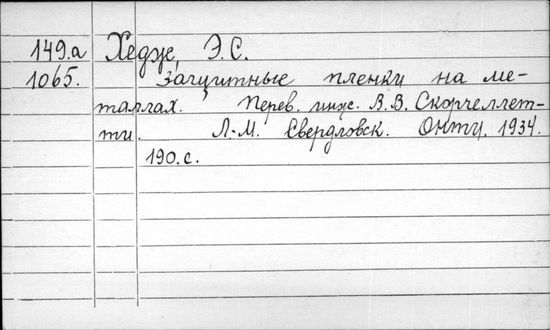 149.а Хедус, Э.С.
1065. Защитные пленки на ме-
таллах. Перев. инж. В.В. Скорчеллет-
ти. Л-М. Свердловск. Онти, 1934.
190.с.